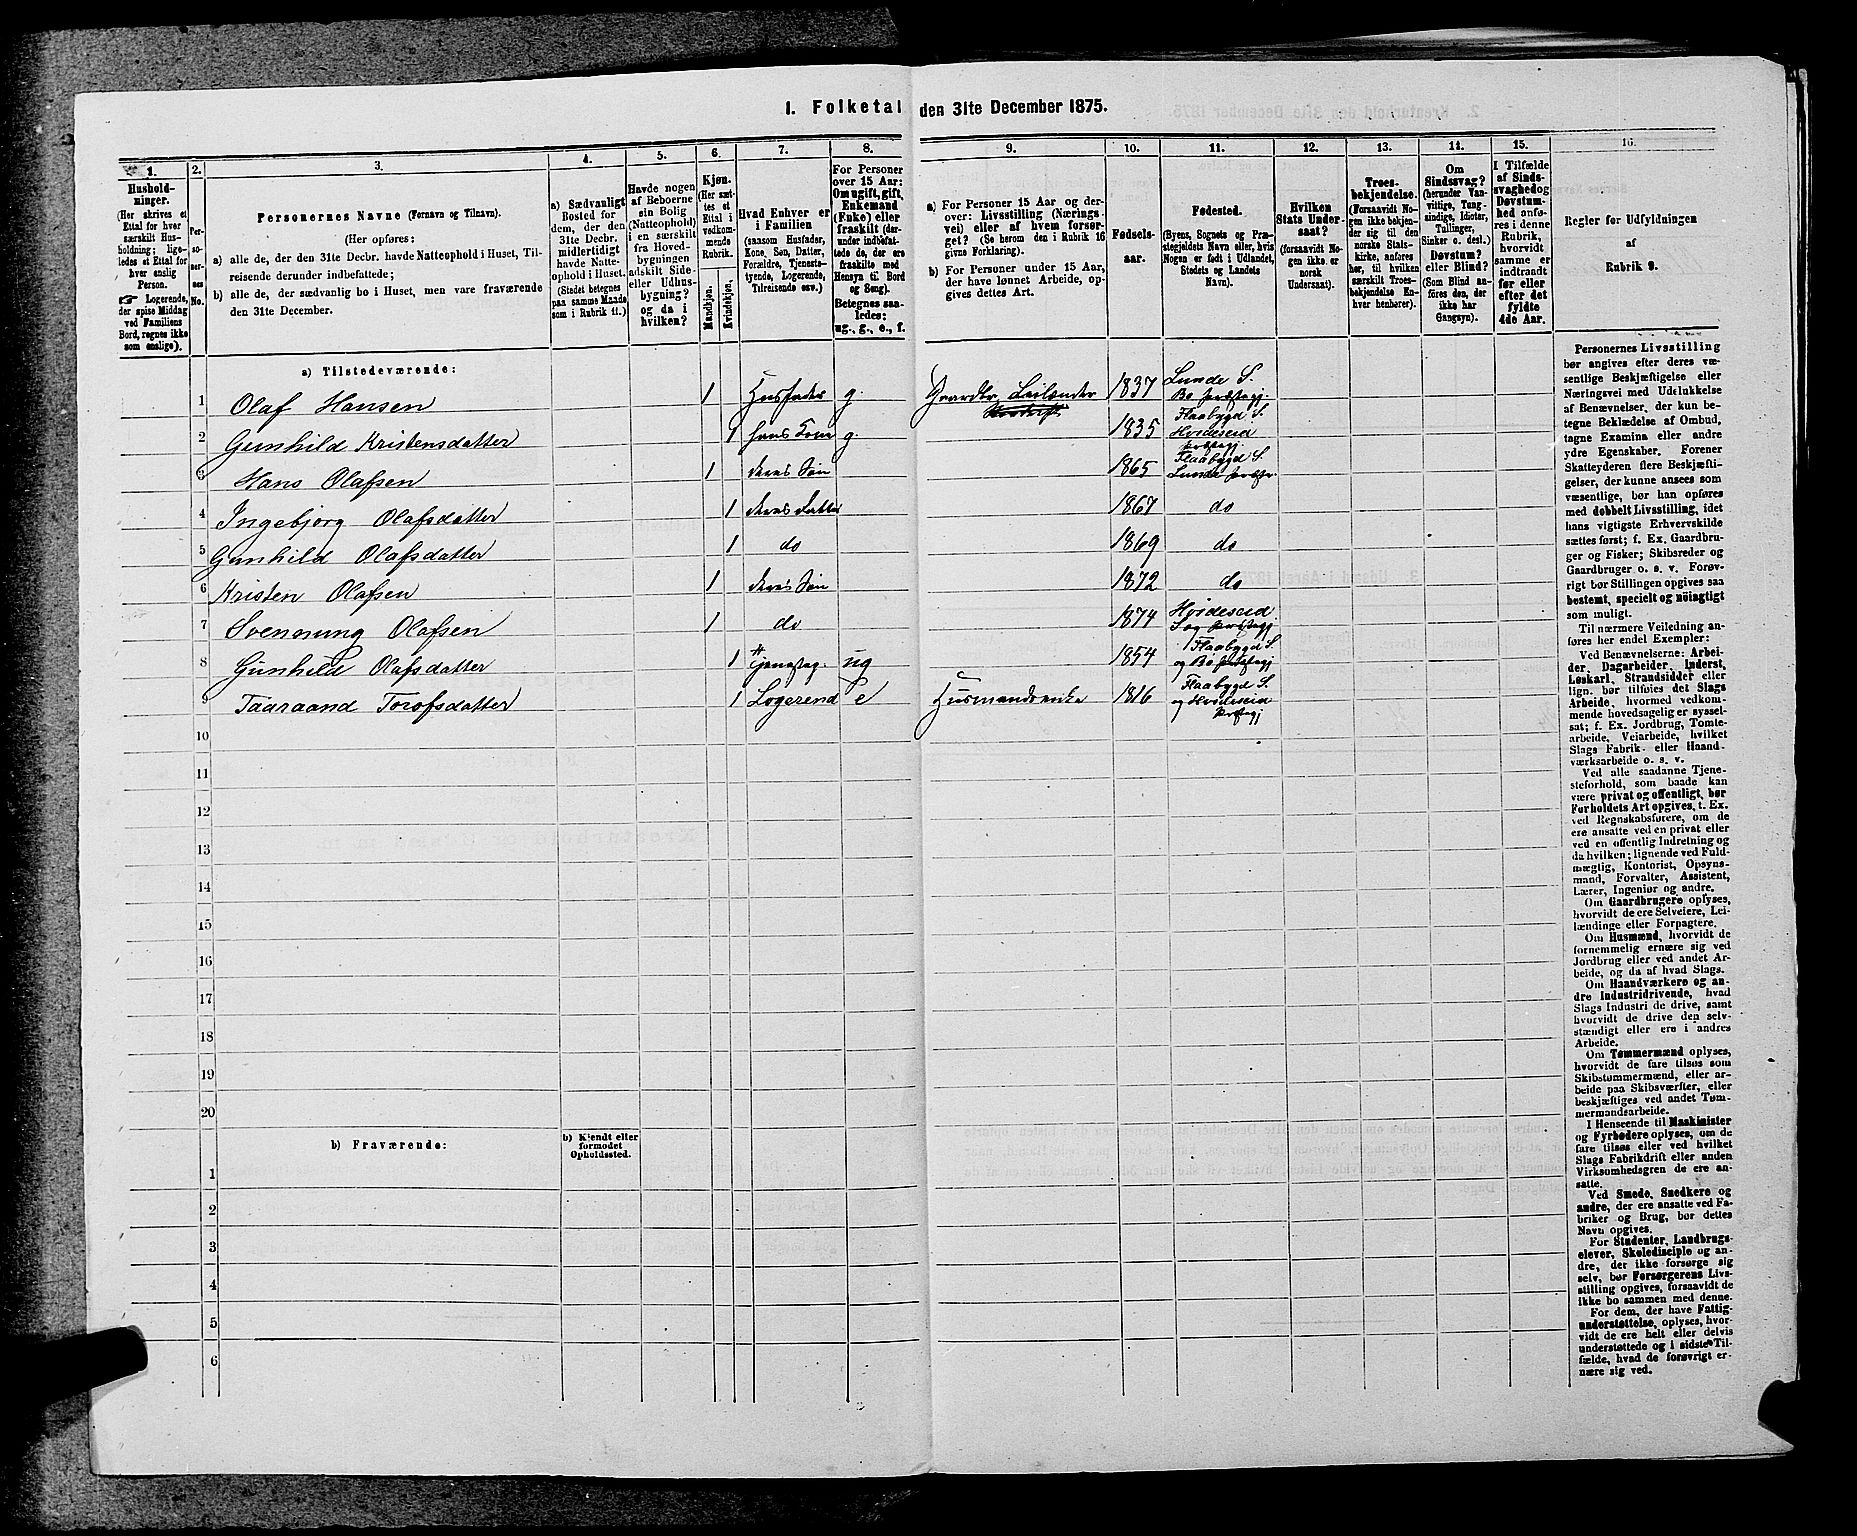 1. Folketal den 31te December 1875.
1. 2. 3. 4. 5. 6. 7. 8. 9. 10. 11. 12. 13. 14. 15. 16.
Hushold-
ninger.
(Her skrives et
Ettal for hver
særskilt Hus-
holdning; lige-
ledes et Ettal for
hver enslig
Person.
☞ Logerende,
der spise Middag
ved Familiens
Bord, regnes ikke
som enslige).
Per-
so-
ner-
nes
No.
Personernes Navne (Fornavn og Tilnavn).
(Her opføres:
a) alle de, der den 31te Decbr. havde Natteophold i Huset, Til-
reisende derunder indbefattede;
b) alle de, der sædvanlig bo i Huset, men vare fraværende
den 31te December.
a) Sædvanligt
Bosted for
dem, der den
31te Decbr.
midlertidigt
havde Natte-
ophold i Huset.
(Stedet betegnes
paa samme Maade
som i Rubrik 11.)
Havde nogen
af Beboerne
sin Bolig
(Natteophold)
i en særskilt
fra Hoved-
bygningen
adskilt Side-
eller Udhus-
bygning?
og da i
hvilken?
Kjøn.
(Her sæt-
tes et
Ettal i
vedkom-
mende
Rubrik.
Mandkjøn.
Kvindekjøn.
Hvad Enhver er
i Familien
(saasom Husfader,
Kone, Søn, Datter,
Forældre, Tjeneste-
tyende, Logerende,
Tilreisende osv.)
For Personer
over 15 Aar:
Om ugift, gift,
Enkemand
(Enke) eller
fraskilt (der-
under indbefat-
tede de, der ere
fraskilte med
Hensyn til Bord
og Seng).
Betegnes saa-
ledes:
ug., g., e., f.
a) For Personer 15 Aar og der-
over: Livsstilling (Nærings-
vei) eller af hvem forsør-
get? (Se herom den i Rubrik 16
givne Forklaring).
b) For Personer under 15 Aar,
der have lønnet Arbeide, op-
gives dettes Art.
Fødsels-
aar.
Fødested.
(Byens, Sognets og Præ-
stegjeldets Navn eller, hvis
Nogen er født i Udlandet,
Stedets og Landets
Navn).
Hvilken
Stats Under-
saat?
(forsaavidt No-
gen ikke er
norsk
Undersaat).
Troes-
bekjendelse.
(Forsaavidt No-
gen ikke bekjen-
der sig til den
norske Stats-
kirke, anføres
her, til hvilken
særskilt Troes-
bekjendelse En-
hver henhører).
Om
Sindssvag?
(herunder Van-
vittige, Tung-
sindige, Idioter,
Tullinger,
Sinker o. desl.)
Døvstum?
eller Blind?
(Som Blind an-
føres den, der
ikke har
Gangsyn).
I Tilfælde
af Sinds-
svaghed og
Døvstum-
hed anfø-
res i denne
Rubrik,
hvorvidt
samme er
indtraadt
før eller
efter det
fyldte
4de Aar.
Regler for Udfyldningen
af
Rubrik 9.
a) Tilstedeværende:
1 Olaf Hansen 1 Husfader g. Gaardbr. Leilænder 1837 Lunde S.
Bø Præstegj
2 Gunhild Kristensdatter 1 hans Kone g. 1835 Flaabygd S.
Hvideseid
Præstegj.
3 Hans Olafsen 1 deres Søn 1865 Flaabygd S.
Lunde Præstgj.
4 Ingebjørg Olafsdatter 1 deres Datter 1867 do
5 Gunhild Olafsdatter 1 do 1869 do
6 Kristen Olafsen 1 deres Søn 1872 do
7 Svennung Olafsen 1 do 1874 Hvideseid
S og Præstegj
8 Gunhild Olafsdatter 1 Tjenesteg. ug 1854 Flaabygd S.
og Bø Præstegj
9 Taaraand Torofsdatter 1 Logerend e Husmandsenke 1816 Flaabygd S.
og Hvideseid
Præstegj
10
11
12
13
14
15
16
17
18
19
20
b) Fraværende:
b) Kjendt eller
formodet
Opholdssted.
1
2
3
4
5
6
Personernes Livsstilling
bør angives efter deres væ-
sentlige Beskjæftigelse eller
Næringsvei med Udelukkelse
af Benævnelser, der kun be-
tegne Beklædelse af Ombud,
tagne Examina eller andre
ydre Egenskaber. Forener
Skatteyderen flere Beskjæfti-
gelser, der kunne ansees som
væsentlige, bør han opføres
med dobbelt Livsstilling, idet
hans vigtigste Erhvervskilde
sættes først; f. Ex. Gaardbru-
ger og Fisker; Skibsreder og
Gaardbruger o. s. v. Forøv-
rigt bør Stillingen opgives saa
bestemt, specielt og nöiagtigt
som muligt.
Til nærmere Veiledning an-
føres her endel Exempler:
Ved Benævnelserne: Arbei-
der, Dagarbeider, Inderst,
Løskarl, Strandsidder eller
lign. bør tilføies det Slags
Arbeide, hvormed vedkom-
mende hovedsagelig er syssel-
sat; f. Ex. Jordbrug, Tomte-
arbeide, Veiarbeide, hvilket
Slags Fabrik- eller Haand-
værksarbeide o. s. v.
Ved alle saadanne Tjene-
steforhold, som baade kan
være privat og offentligt, bør
Forholdets Art opgives, t. Ex.
ved Regnskabsførere, om de
ere ansatte ved en privat eller
ved en offentlig Indretning og
da hvilken; lignende ved Fuld-
mægtig, Kontorist, Opsyns-
mand, Forvalter, Assistent,
Lærer, Ingeniør og andre.
Om Gaardbrugere oplyses,
hvorvidt de ere Selveiere, Lei-
lændinge eller Forpagtere.
Om Husmænd, hvorvidt de
fornemmelig ernære sig ved
Jordbrug eller ved andet Ar-
beide, og da af hvad Slags.
Om Haandværkere og an-
dre Industridrivende, hvad
Slags Industri de drive, samt
hvorvidt de drive den selv-
stændigt eller ere i andres
Arbeide.
Om Tømmermænd oplyses,
hvorvidt de fare tilsøs som
Skibstømmermænd, eller ar-
beide paa Skibsværfter, eller
beskjæftiges ved andet Tøm-
mermandsarbeide.
I Henseende til Maskinister
og Fyrbødere oplyses, om de
fare tilsøs eller ved hvilket
Slags Fabrikdrift eller anden
Virksomhedsgren de ere an-
satte.
Ved Smede, Snedkere og
andre, der ere ansatte ved Fa-
briker og Brug, bør dettes
Navn opgives.
For Studenter, Landbrugs-
elever, Skoledisciple og an-
dre, der ikke forsørge sig
selv, bør Forsørgerens Livs-
stilling opgives, forsaavidt de
ikke bo sammen med denne.
For dem, der have Fattig-
understøttelse, oplyses, hvor-
vidt de ere helt eller delvis
understøttede og i sidste Til-
fælde, hvad de forøvrigt er-
nære sig ved.